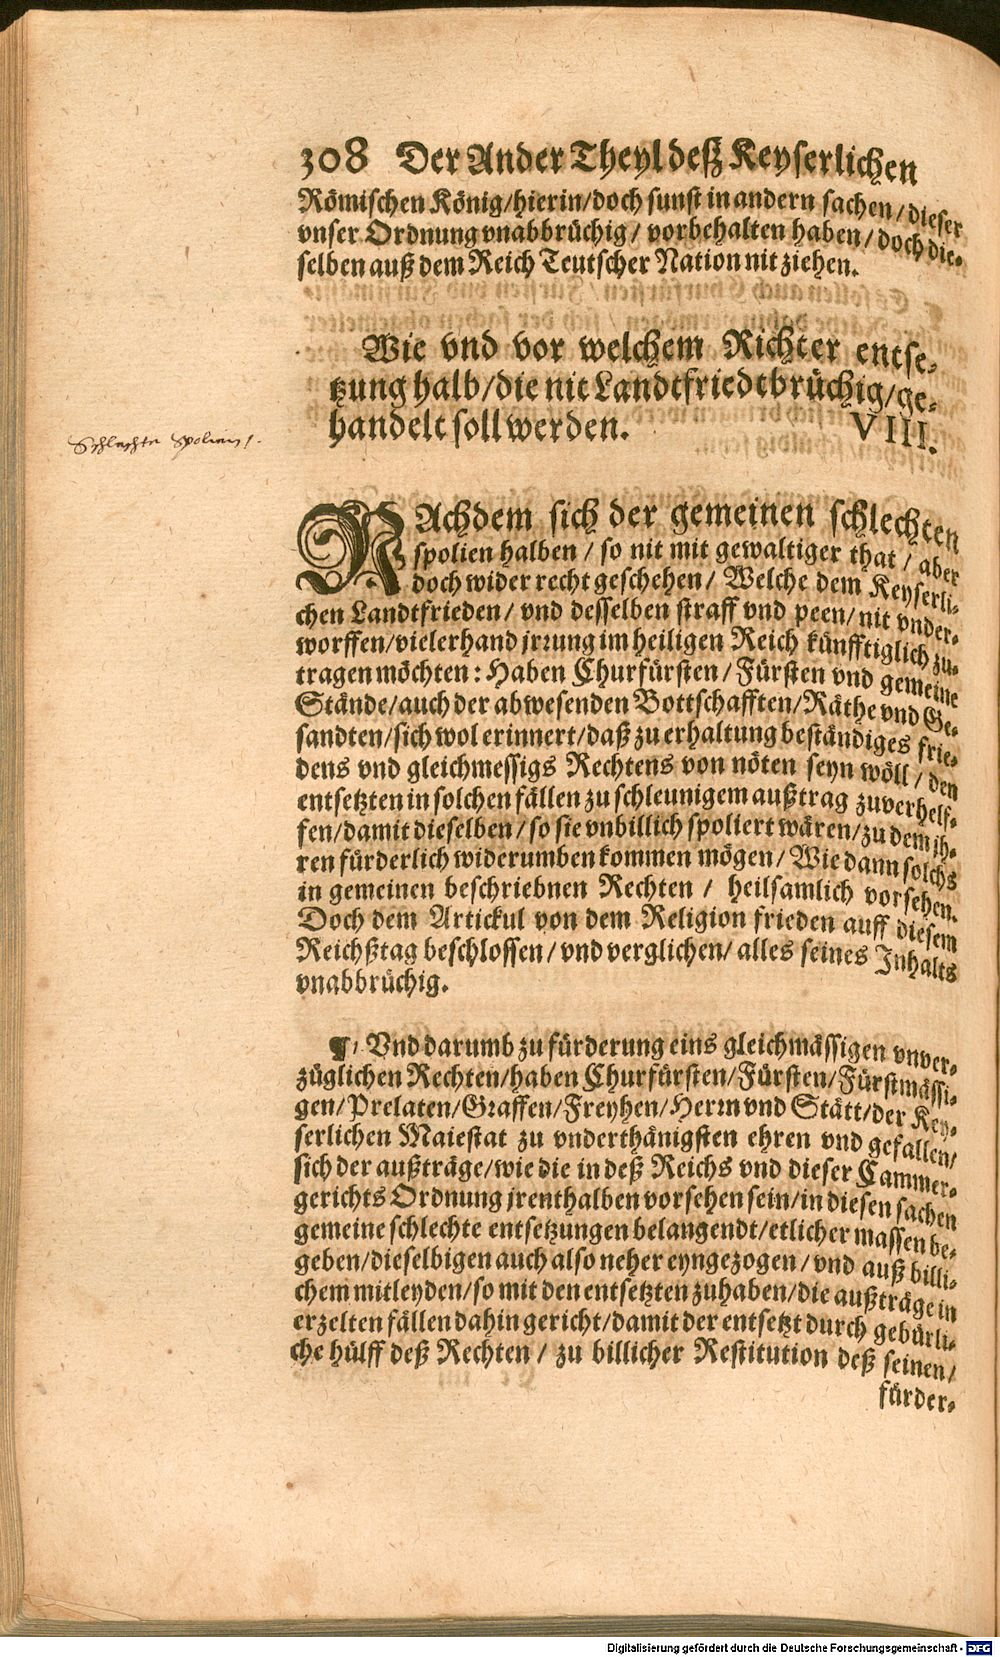 308 Der Ander Theyl deß Keyserlichen
Römischen König/hierin/doch sunst in andern sachen/dieser
vnser Ordnung vnabbrüchig/ vorbehalten haben/doch die-
selben auß dem Reich Teutscher Nation nit ziehen.
Wie vnd vor welchem Richter entse-
tzung halb/die nit Landtfriedtbrüchig/ge-
handelt soll werden. VIII.
Schlechte Spolien
NAchdem sich der gemeinen schlechten
spolien halben / so nit mit gewaltiger that / aber
doch wider recht geschehen/ Welche dem Keyserli-
chen Landtfrieden/ vnd desselben straff vnd peen/ nit vnder-
worffen/vielerhand jrrung im heiligen Reich künfftiglich zu-
tragen möchten: Haben Churfürsten/ Fürsten vnd gemeine
Stände/auch der abwesenden Bottschafften/Räthe vnd Ge-
sandten/sich wol erinnert/daß zu erhaltung beständiges frie-
dens vnd gleichmessigs Rechtens von nöten seyn wöll / den
entsetzten in solchen fällen zu schleunigem außtrag zuverhelf-
fen/damit dieselben/so sie vnbillich spoliert wären/zu dem jh-
ren fürderlich widerumben kommen mögen/ Wie dann solchs
in gemeinen beschriebnen Rechten / heilsamlich vorsehen.
Doch dem Artickul von dem Religion frieden auff diesem
Reichßtag beschlossen/ vnd verglichen/ alles seines Inhalts
vnabbrüchig.
¶ Vnd darumb zu fürderung eins gleichmässigen vnver-
züglichen Rechten/haben Churfürsten/Fürsten/Fürstmässi-
gen/Prelaten/Graffen/Freyhen/Herrn vnd Stätt/der Key-
serlichen Maiestat zu vnderthänigsten ehren vnd gefallen/
sich der außträge/wie die in deß Reichs vnd dieser Cammer-
gerichts Ordnung jrenthalben vorsehen sein/in diesen sachen
gemeine schlechte entsetzungen belangendt/etlicher massen be-
geben/dieselbigen auch also neher eyngezogen/vnd auß billi-
chem mitleyden/so mit den entsetzten zuhaben/die außträge in
erzelten fällen dahin gericht/damit der entsetzt durch gebürli-
che hülff deß Rechten / zu billicher Restitution deß seinen/
fürder-
Digitalisierung gefördert durch die Deutsche Forschungsgemeinschaft - DFG